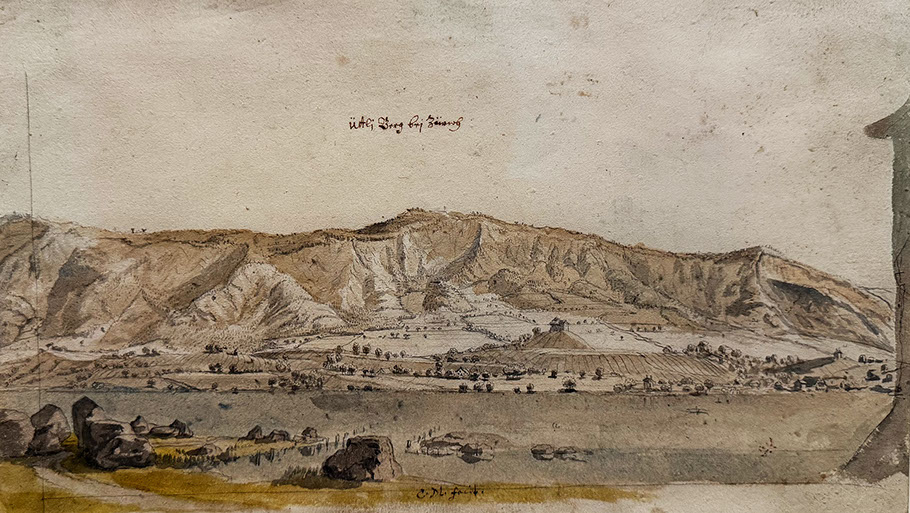 Ütli Berg bej Zürich
C. M. fecit.